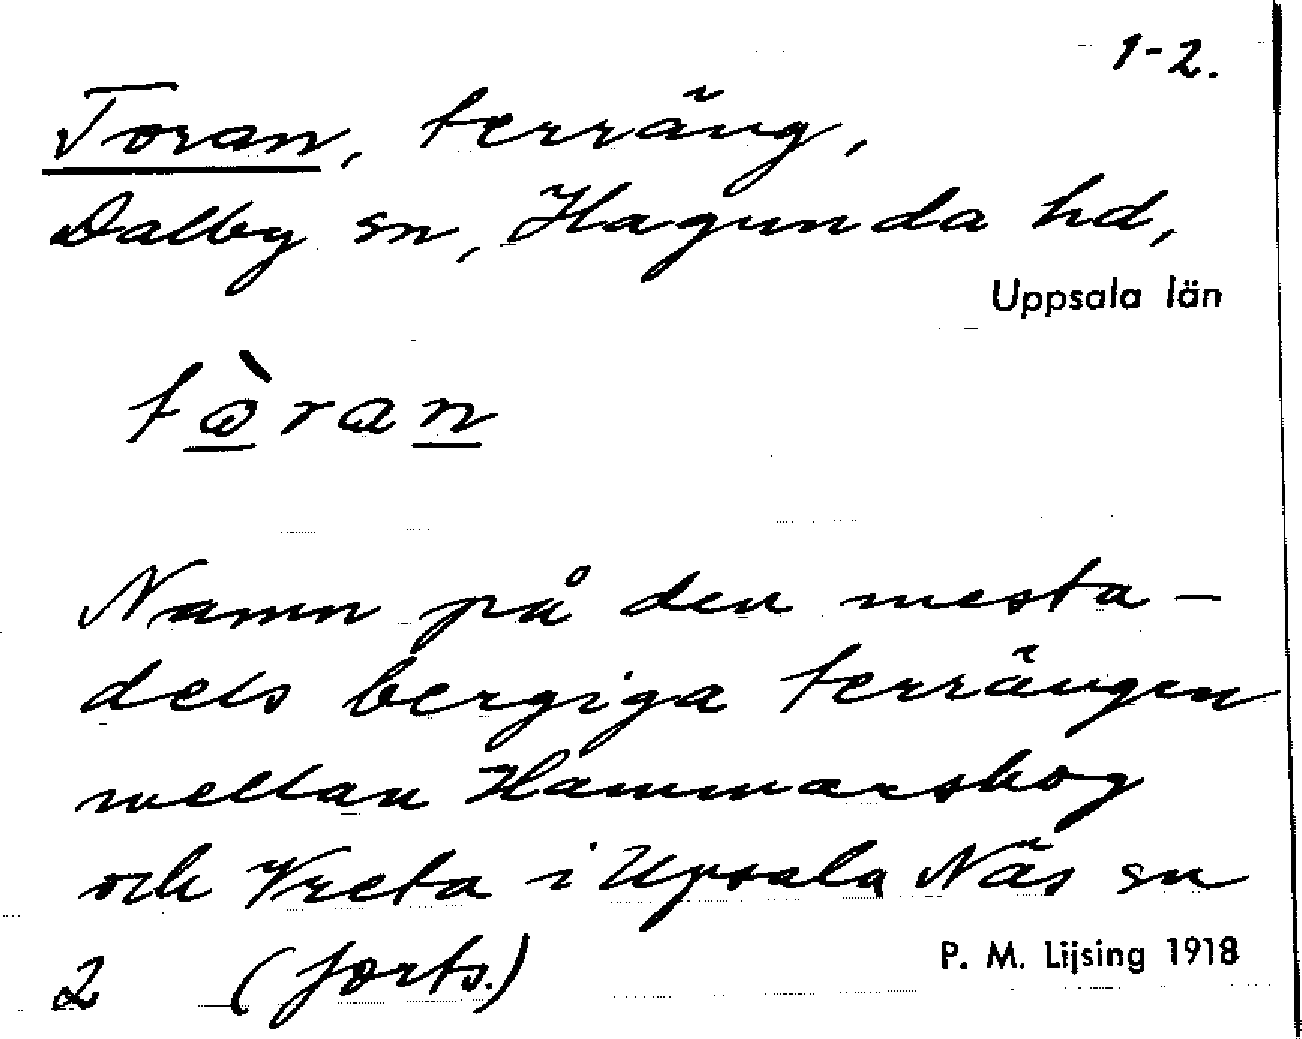 1-2.
Toran, terräng,
Dalby sn, Hagunda hd,
Uppsala län
tòran
Namn på den mesta-
dels bergiga terrängen
mellan Hammarskog
och Vreta i Upsala Näs sn
2 (forts.)
P. M. Lijsing 1918